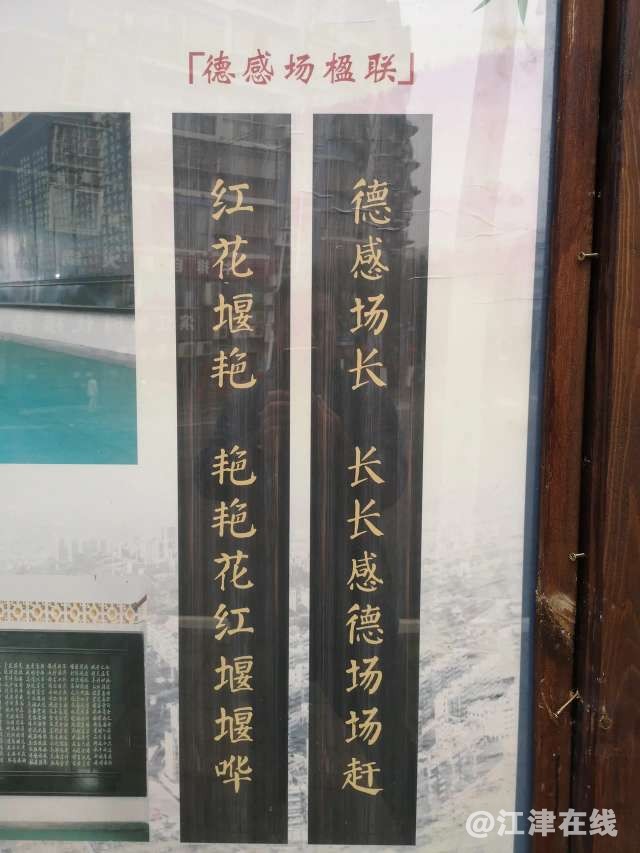 「德感场楹联」
德感场长 长长感德场场赶
红花堰艳 艳艳花红堰堰哗
@江津在线